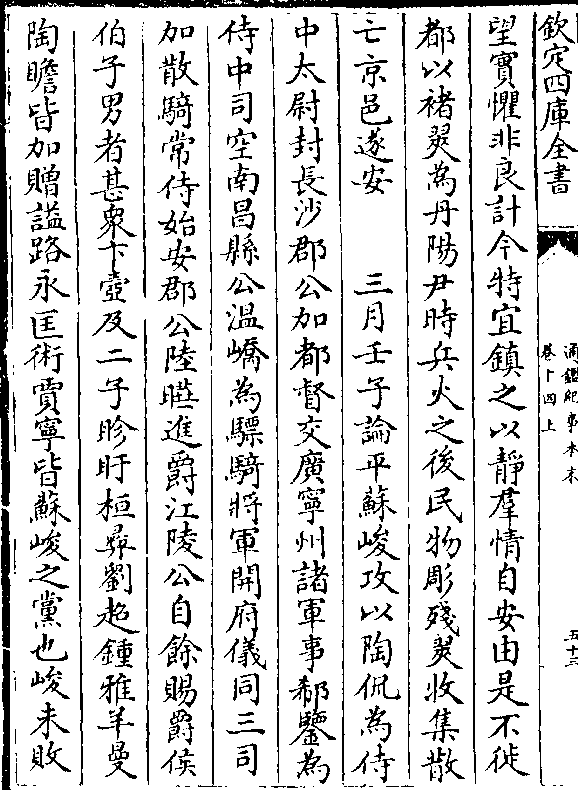 欽定四庫全書
通鑑紀事本末
卷十四上
五十三
望實懼非良計今特宜鎮之以靜羣情自安由是不徙
都以褚翜為丹陽尹時兵火之後民物彫殘翜收集散
亡京邑遂安　　三月壬子論平蘇峻攻以陶侃為侍
中太尉封長沙郡公加都督交廣寧州諸軍事郗鑒為
侍中司空南昌縣公溫嶠為驃騎將軍開府儀同三司
加散騎常侍始安郡公陸曄進爵江陵公自餘賜爵侯
伯子男者甚衆卞壼及二子眕盱桓彞劉超鍾雅羊曼
陶瞻皆加贈諡路永匡術賈寧皆蘇峻之黨也峻未敗